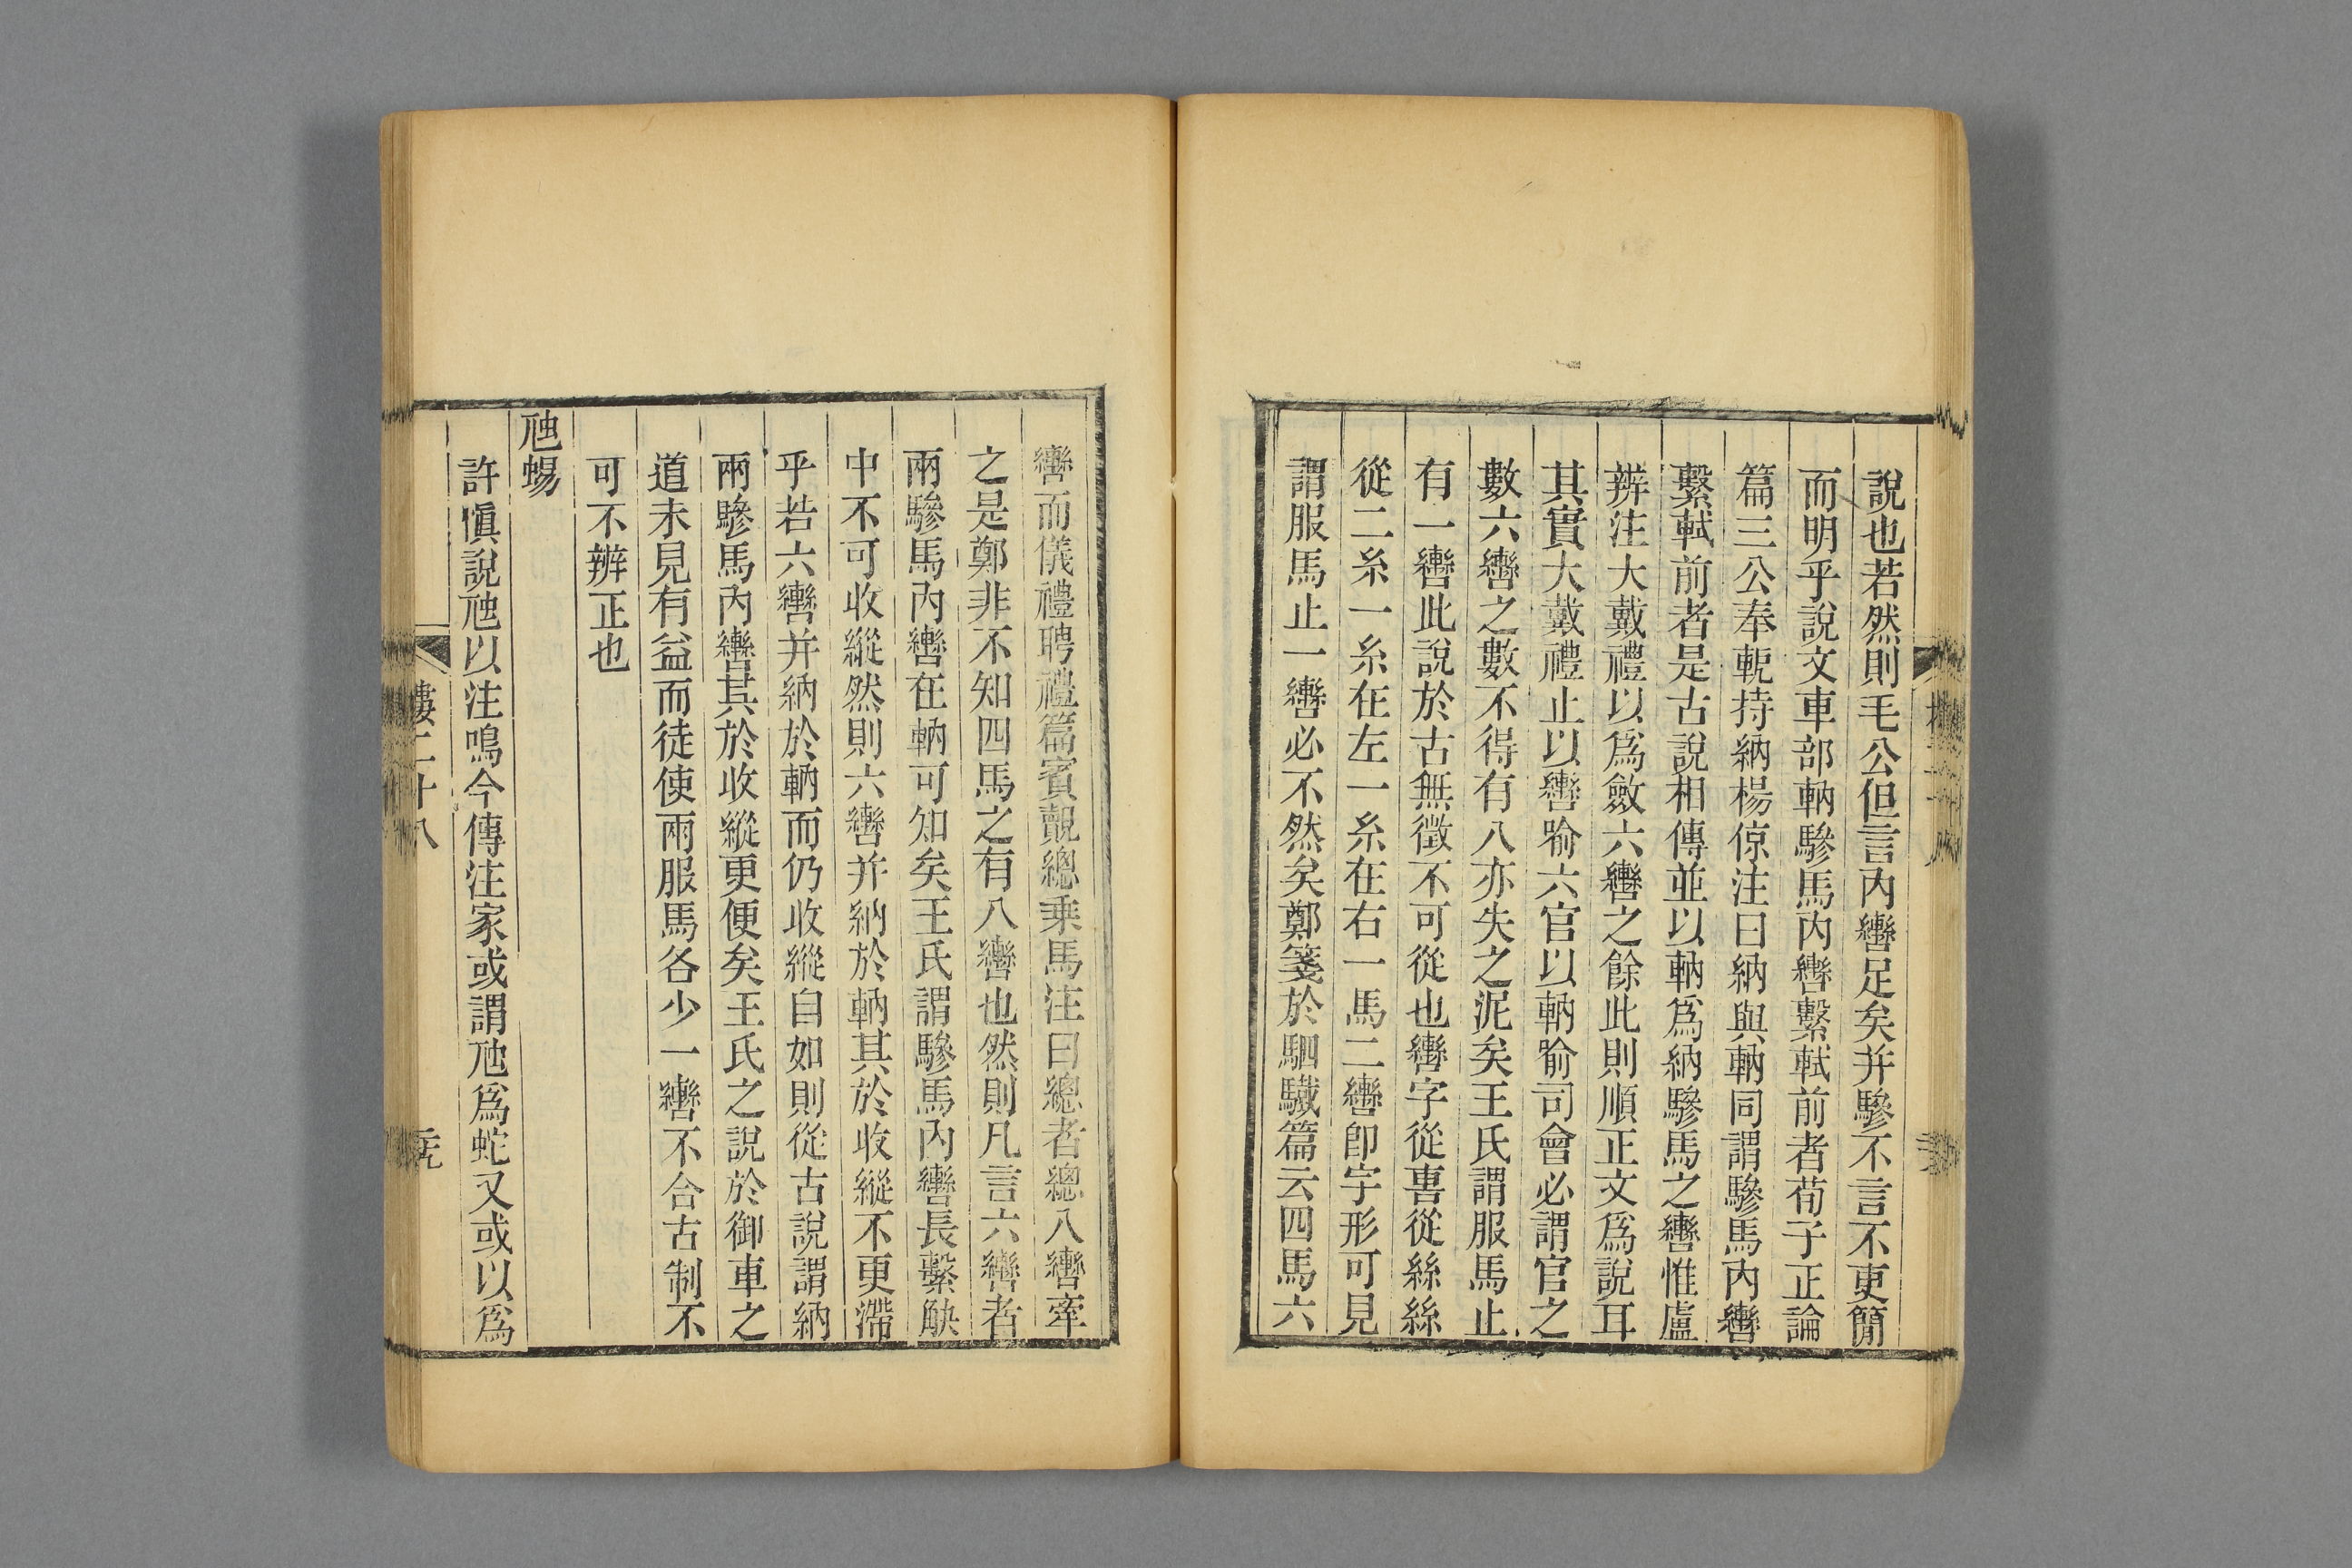 說也若然則毛公但言內轡足矣并驂不言不更簡
而明乎說文車部軜驂馬內轡繫軾前者荀子正論
篇三公奉軶持納楊倞注曰納與軜同謂驂馬內轡
繫軾前者是古說相傳並以軜爲納驂馬之轡惟盧
辨注大戴禮以爲斂六轡之餘此則順正文爲說耳
其實大戴禮止以轡喻六官以軜喻司會必謂官之
數六轡之數不得有八亦失之泥矣王氏謂服馬止
有一轡此說於古無徵不可從也轡字從軎從絲絲
從二糸一糸在左一糸在右一馬二轡卽字形可見
謂服馬止一轡必不然矣鄭箋於駟驖篇云四馬六
轡而儀禮聘禮篇賓覿總乘馬注曰總者總八轡牽
之是鄭非不知四馬之有八轡也然則凡言六轡者
兩驂馬內轡在軜可知矣王氏謂驂馬內轡長繫觖
中不可收縱然則六轡并納於軜其於收縱不更滯
乎若六轡并納於軜而仍收縱自如則從古說謂納
兩驂馬內轡其於收縱更便矣王氏之說於御車之
道未見有益而徒使兩服馬各少一轡不合古制不
可不辨正也
虺蜴
許愼說虺以注鳴今傳注家或謂虺爲蛇又或以爲
廔二十八